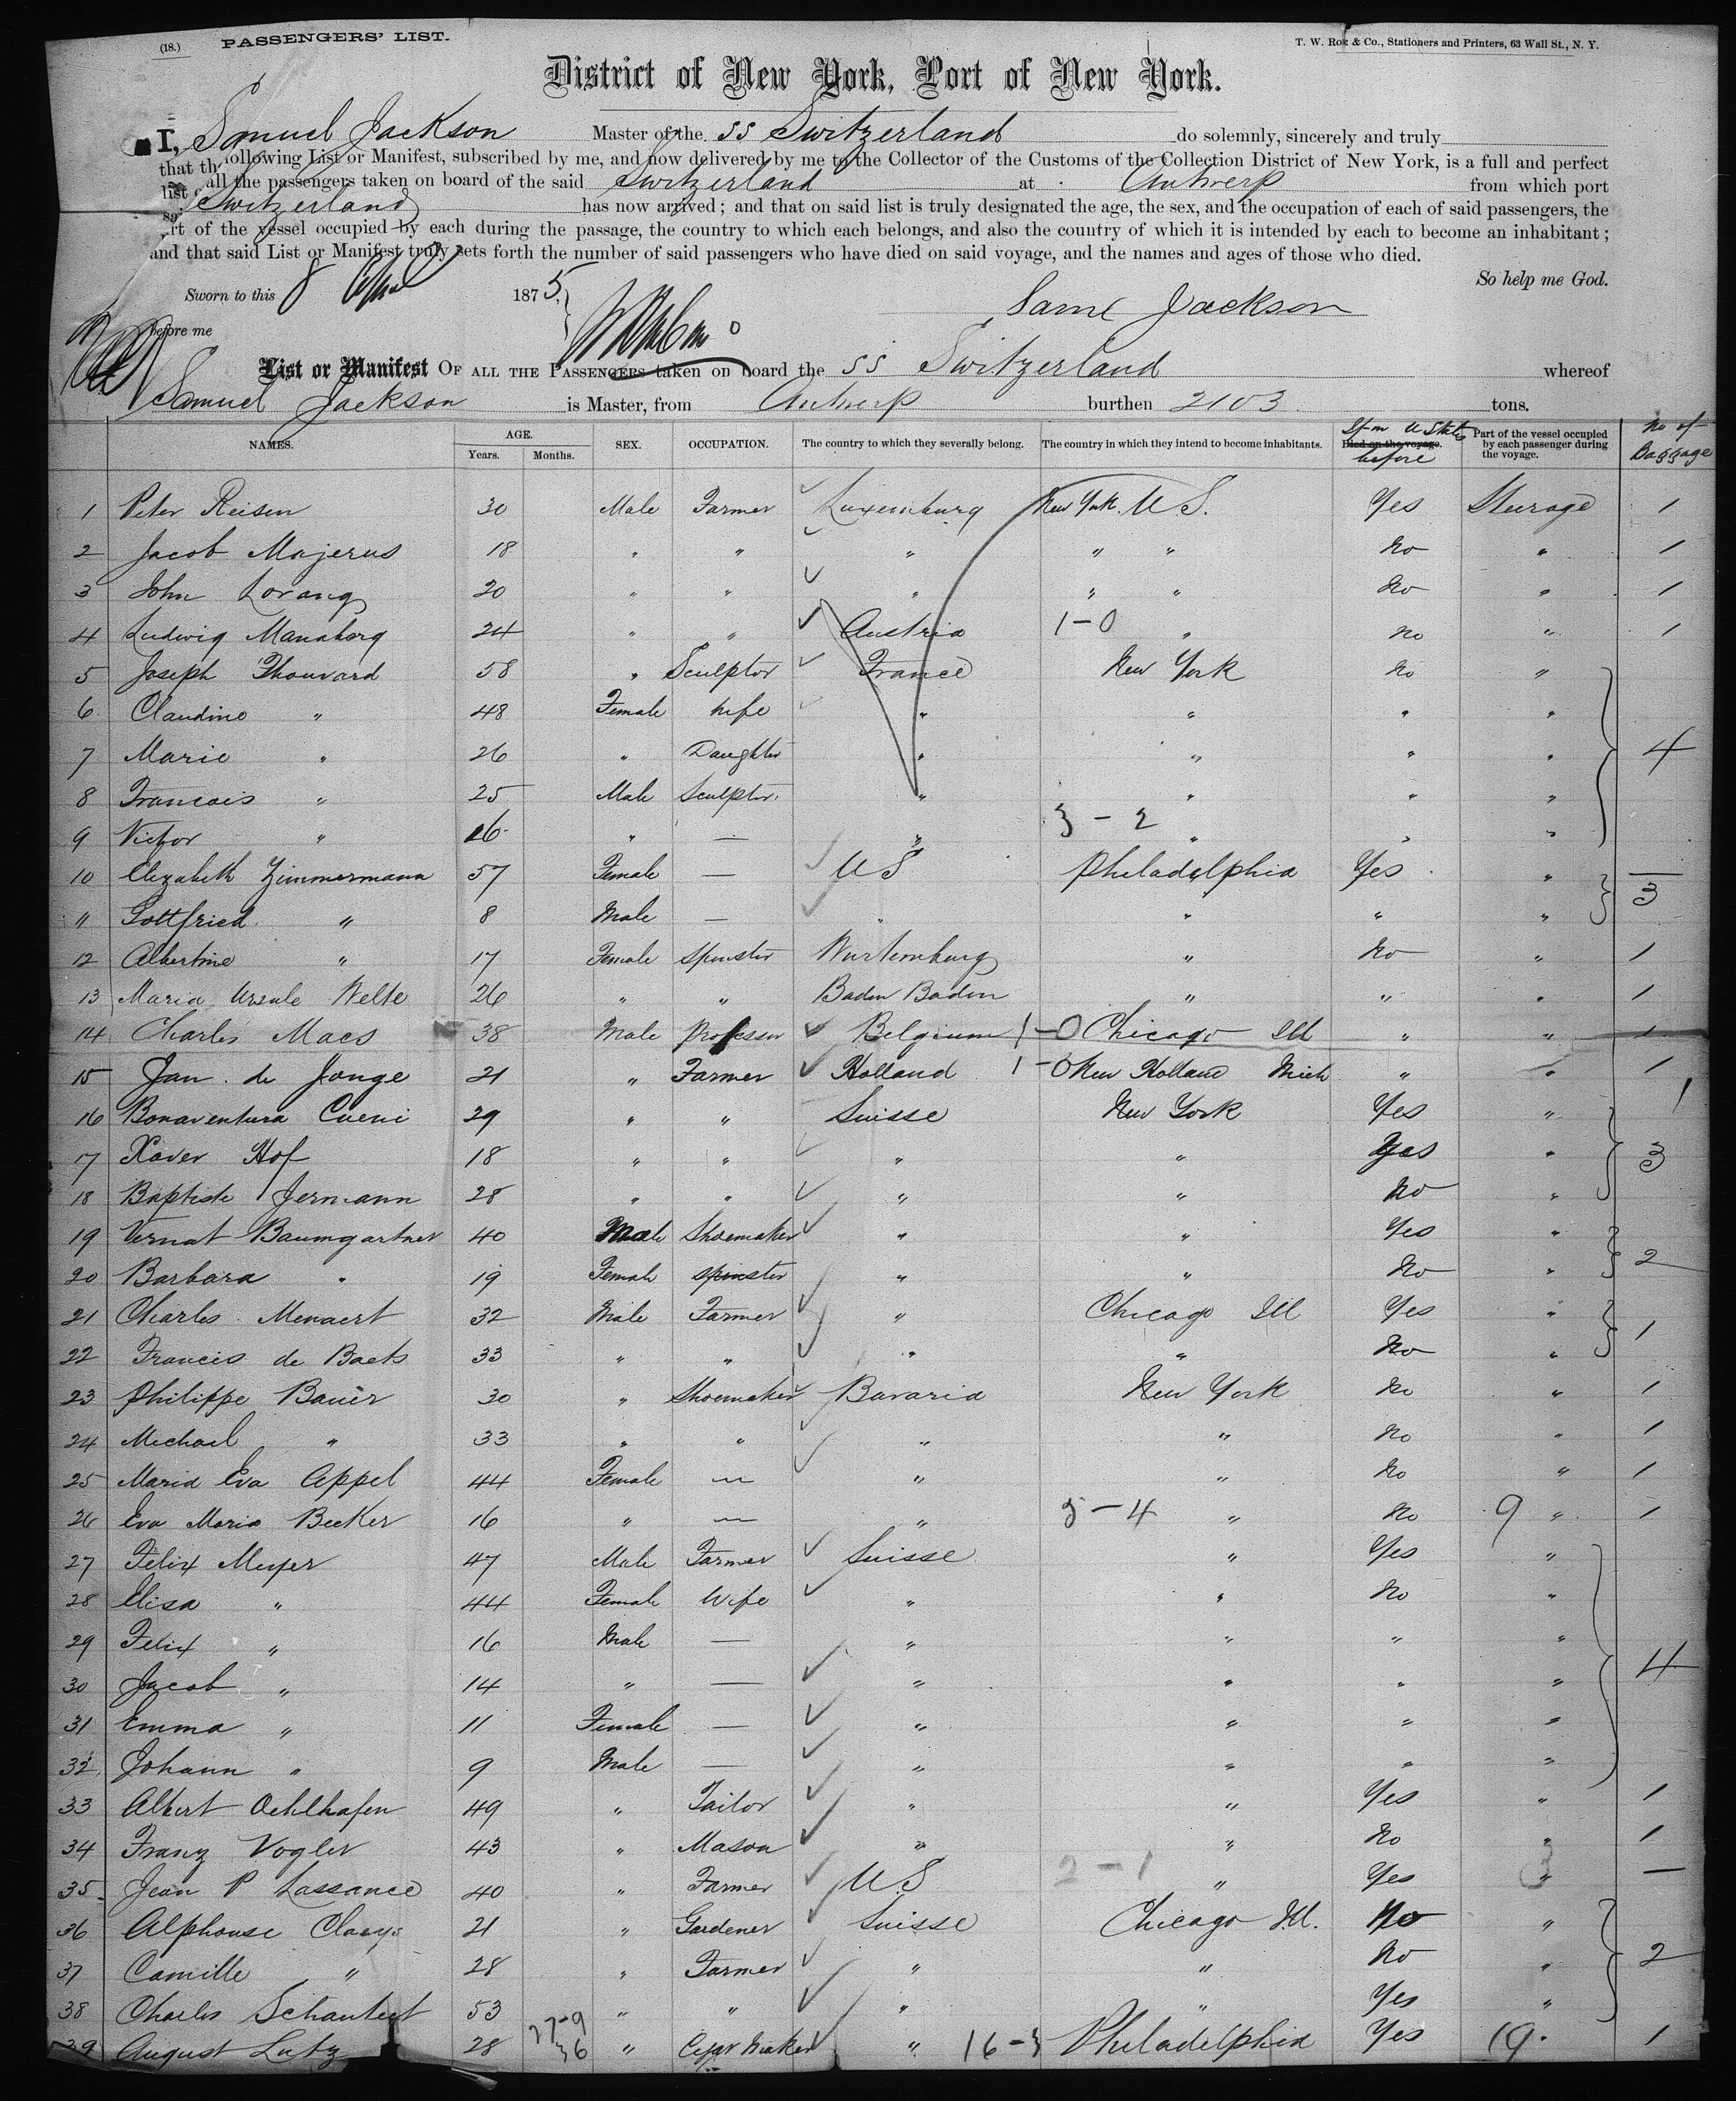 (18.) PASSENGERS' LIST.
T. W. Roe & Co., Stationers and Printers, 63 Wall St., N. Y.
District of New York, Port of New York.
I, Samuel Jackson Master of the SS Switzerland do solemnly, sincerely and truly
that th ollowing List or Manifest, subscribed by me, and now delivered by me to the Collector of the Customs of the Collection District of New York, is a full and perfect
list o all the passengers taken on board of the said Switzerland at Antwerp from which port
sai Switzerland has now arrived; and that on said list is truly designated the age, the sex, and the occupation of each of said passengers, the
rt of the vessel occupied by each during the passage, the country to which each belongs, and also the country of which it is intended by each to become an inhabitant;
and that said List or Manifest truly sets forth the number of said passengers who have died on said voyage, and the names and ages of those who died.
So help me God.
Sworn to this 8 April 1875
Saml Jackson
before me
List or Manifest OF ALL THE PASSENGERS taken on board the SS Switzerland whereof
Samuel Jackson is Master, from Antwerp burthen 2103 tons.
NAMES. AGE. Years. Months. SEX. OCCUPATION. The country to which they severally belong. The country in which they intend to become inhabitants. Died on the voyage. If in U States before Part of the vessel occupied by each passenger during the voyage. No of Baggage
1 Peter Reisen 30 Male Farmer Luxemburg New York. U S. Yes Steerage 1
2 Jacob Majerus 18 " " " " " No " 1
3 John Lorang 20 " " " " " No " 1
4 Ludwig Manaberg 24 " " Austria 1-0 " No " 1
5 Joseph Thouvard 58 " Sculptor France New York No "
6 Claudine " 48 Female Wife " " " "
7 Marie " 26 " Daughter " " " " 4
8 Francois " 25 Male Sculptor " " " "
9 Victor " 16 " — " 3-2 " " "
10 Elizabeth Zimmermann 57 Female — U S Philadelphia Yes " 3
" Gottfried " 8 Male — " " " "
12 Albertine " 17 Female Spinster Wurtemburg " No " 1
13 Maria Ursule Welte 26 " " Baden Baden " " " 1
14 Charles Maes 38 Male Professor Belgium 1-0 Chicago Ill " " 1
15 Jan de Jonge 21 " Farmer Holland 1-0 New Holland Mich " " 1
16 Bonaventura Cueni 29 " " Suisse New York Yes " 1
17 Xaver Hof 18 " " " " Yes " 3
18 Baptiste Jermann 28 " " " " No "
19 Vernat Baumgartner 40 Male Shoemaker " " Yes "
20 Barbara " 19 Female Spinster " " No " 2
21 Charles Menaert 32 Male Farmer " Chicago Ill Yes "
22 Francis de Baets 33 " " " " No " 1
23 Philippe Bauer 30 " Shoemaker Bavaria New York No " 1
24 Michael " 33 " " " " No " 1
25 Maria Eva Appel 44 Female — " " No " 1
26 Eva Maria Becker 16 " — " 5-4 " No 9 " 1
27 Felix Meyer 47 Male Farmer Suisse " Yes "
28 Elisa " 44 Female Wife " " No "
29 Felix " 16 Male — " " " "
30 Jacob " 14 " — " " " " 4
31 Emma " 11 Female — " " " "
32 Johann " 9 Male — " " " "
33 Albert Oehlhafen 49 " Tailor " " Yes " 1
34 Franz Vogler 43 " Mason " " No " 1
35 Jean P Lassance 40 " Farmer U S 2-1 " Yes 3 " —
36 Alphonse Claeys 21 " Gardener Suisse Chicago Ill. No "
37 Camille " 28 " Farmer " " No " 2
38 Charles Schauteet 53 " " " " Yes "
39 August Lutz 28 27-9 36 " Cigar Maker " 16-3 Philadelphia Yes 19 " 1